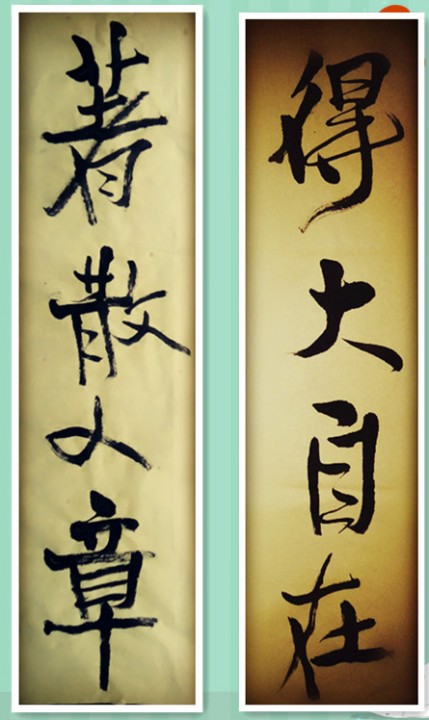 得大自在
著散人章